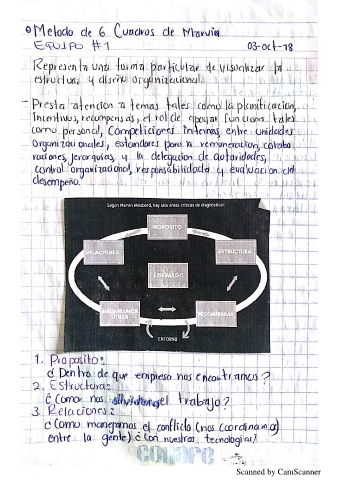 Metodo de 6 Cuadros de Marvin
EQUIPO #1 03-oct-18
Representa una forma particular de visualizar la
estructura y diseño organizacional.
- Presta atencion a temas tales como la planificacion,
Incentivos, recompensas, el rol de apoyar funciones tales
como personal, Competiciones Internas entre unidades
organizacionales, estandares para la remuneracion, colabo
raciones, jerarquias, y la delegacion de autoridades,
control organizacional, responsabilidad y evaluacion del
desempeño.
Según Marvin Weisbord, hay seis áreas críticas de diagnosticar:
PROPOSITO
RELACIONES
ESTRUCTURA
LIDERAZGO
RECOMPENSAS
ENTORNO
1. Proposito:
¿Dentro de que empresa nos encontramos?
2. Estructura:
¿Como nos el trabajo?
3. Relaciones:
¿Como manejamos el conflicto (nos coordinamos)
entre la gente) ¿Con nuestras tecnologias?
conafe
Scanned by CamScanner